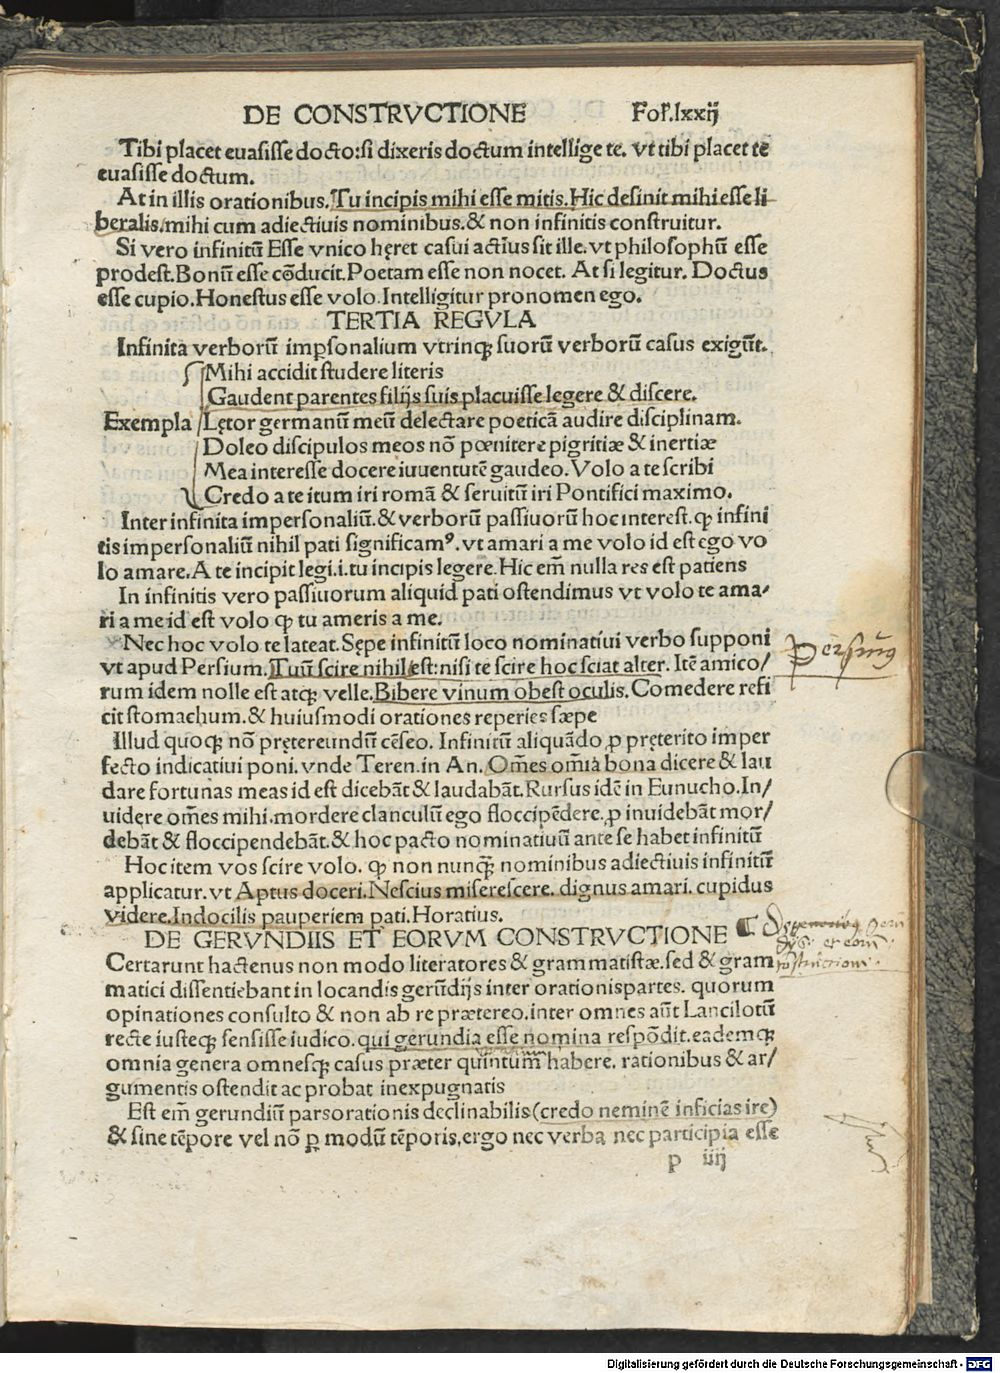 DE CONSTRVCTIONE Fol.lxxij
Tibi placet euasisse docto:si dixeris doctum intellige te. vt tibi placet te
euasisse doctum.
At in illis orationibus. Tu incipis mihi esse mitis. Hic desinit mihi esse li
beralis/mihi cum adiectiuis nominibus.& non infinitis construitur.
Si vero infinitū Esse vnico hęret casui actīus sit ille. vt philosophū esse
prodest. Bonū esse cōducit. Poetam esse non nocet. At si legitur. Doctus
esse cupio. Honestus esse volo. Intelligitur pronomen ego.
TERTIA REGVLA
Infinita verborū imꝑsonalium vtrinqꝫ suorū verborū casus exigūt.
Mihi accidit studere literis
Gaudent parentes filijs suis placuisse legere & discere.
Exempla Lętor germanū meū delectare poeticā audire disciplinam.
Doleo discipulos meos nō pœnitere pigritiæ & inertiæ
Mea interesse docere iuuentutē gaudeo. Volo a te scribi
Credo a te itum iri romā & seruitū iri Pontifici maximo.
Inter infinita impersonaliū.& verborū passiuorū hoc interest. ꝙ infini
tis impersonaliū nihil pati significamꝰ. vt amari a me volo id est ego vo
lo amare. A te incipit legi.i.tu incipis legere. Hic em̄ nulla res est patiens
In infinitis vero passiuorum aliquid pati ostendimus vt volo te ama/
ri a me id est volo ꝙ tu ameris a me.
Nec hoc volo te lateat. Sępe infinitū loco nominatiui verbo supponi
vt apud Persium. Tuū scire nihil est: nisi te scire hoc sciat alter. Itē amico/
rum idem nolle est atqꝫ velle. Bibere vinum obest oculis. Comedere refi
cit stomachum.& huiusmodi orationes reperies sæpe
Persius
Illud quoqꝫ nō prętereundū cēseo. Infinitū aliquādo ꝓ pręterito imper
fecto indicatiui poni. vnde Teren. in An. Om̄es om̄ia bona dicere & lau
dare fortunas meas id est dicebāt & laudabāt. Rursus idē in Eunucho. In/
uidęre om̄es mihi. mordere clanculū ego floccipēdere. ꝓ inuidebāt mor/
debāt & floccipendebāt.& hoc pacto nominatiuū ante se habet infinitū
Hoc item vos scire volo. ꝙ non nunqꝫ̄ nominibus adiectiuis infinitū
applicatur. vt Aptus doceri. Nescius miserescere. dignus amari. cupidus
videre. Indocilis pauperiem pati. Horatius.
DE GERVNDIIS ET EORVM CONSTRVCTIONE
Certarunt hactenus non modo literatores & grammatistæ. sed & gram
matici dissentiebant in locandis gerūdijs inter orationis partes. quorum
opinationes consulto & non ab re prætereo. inter omnes aūt Lancilotū
recte iusteqꝫ sensisse iudico. qui gerundia esse nomina respōdit. eademqꝫ
omnia genera omnesqꝫ casus præter quintum habere. rationibus & ar/
gumentis ostendit ac probat inexpugnatis
Est em̄ gerundiū pars orationis declinabilis (credo neminē inficias ire)
& sine tēpore vel nō ꝑ modū tēporis, ergo nec verba nec participia esse
p iiij
Digitalisierung gefördert durch die Deutsche Forschungsgemeinschaft - DFG